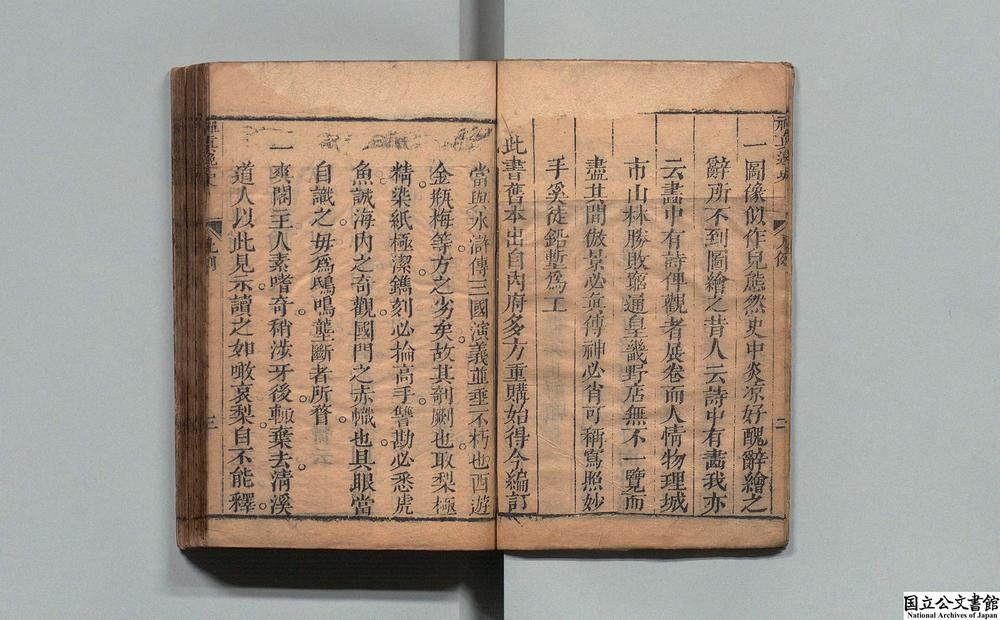 一圖像似作兒態然史中炎凉好醜辭繪之
辭所不到圖繪之昔人云詩中有畵我亦
云畵中有詩俾觀者展卷而人情物理城
市山林勝敗窮通皇畿野店無不一覽而
盡其間倣景必眞傳神必肖可稱寫照妙
手奚徒鉛塹爲工
此書舊本出自內府多方重購始得今編訂
當與水滸傳三國演義並垂不朽也西遊
金瓶梅等方之劣矣故其剞劂也取梨極
精染紙極潔鐫刻必掄高手讐勘必悉虎
魚誠海內之奇觀國門之赤幟也具眼當
自識之毋爲鴟鳴壟斷者所瞀
一爽閣主人素嗜奇稍涉牙後輙棄去清溪
道人以此見示讀之如啖哀梨自不能釋
禪眞逸史
凡例
二
三
国立公文書館
National Archives of Japan